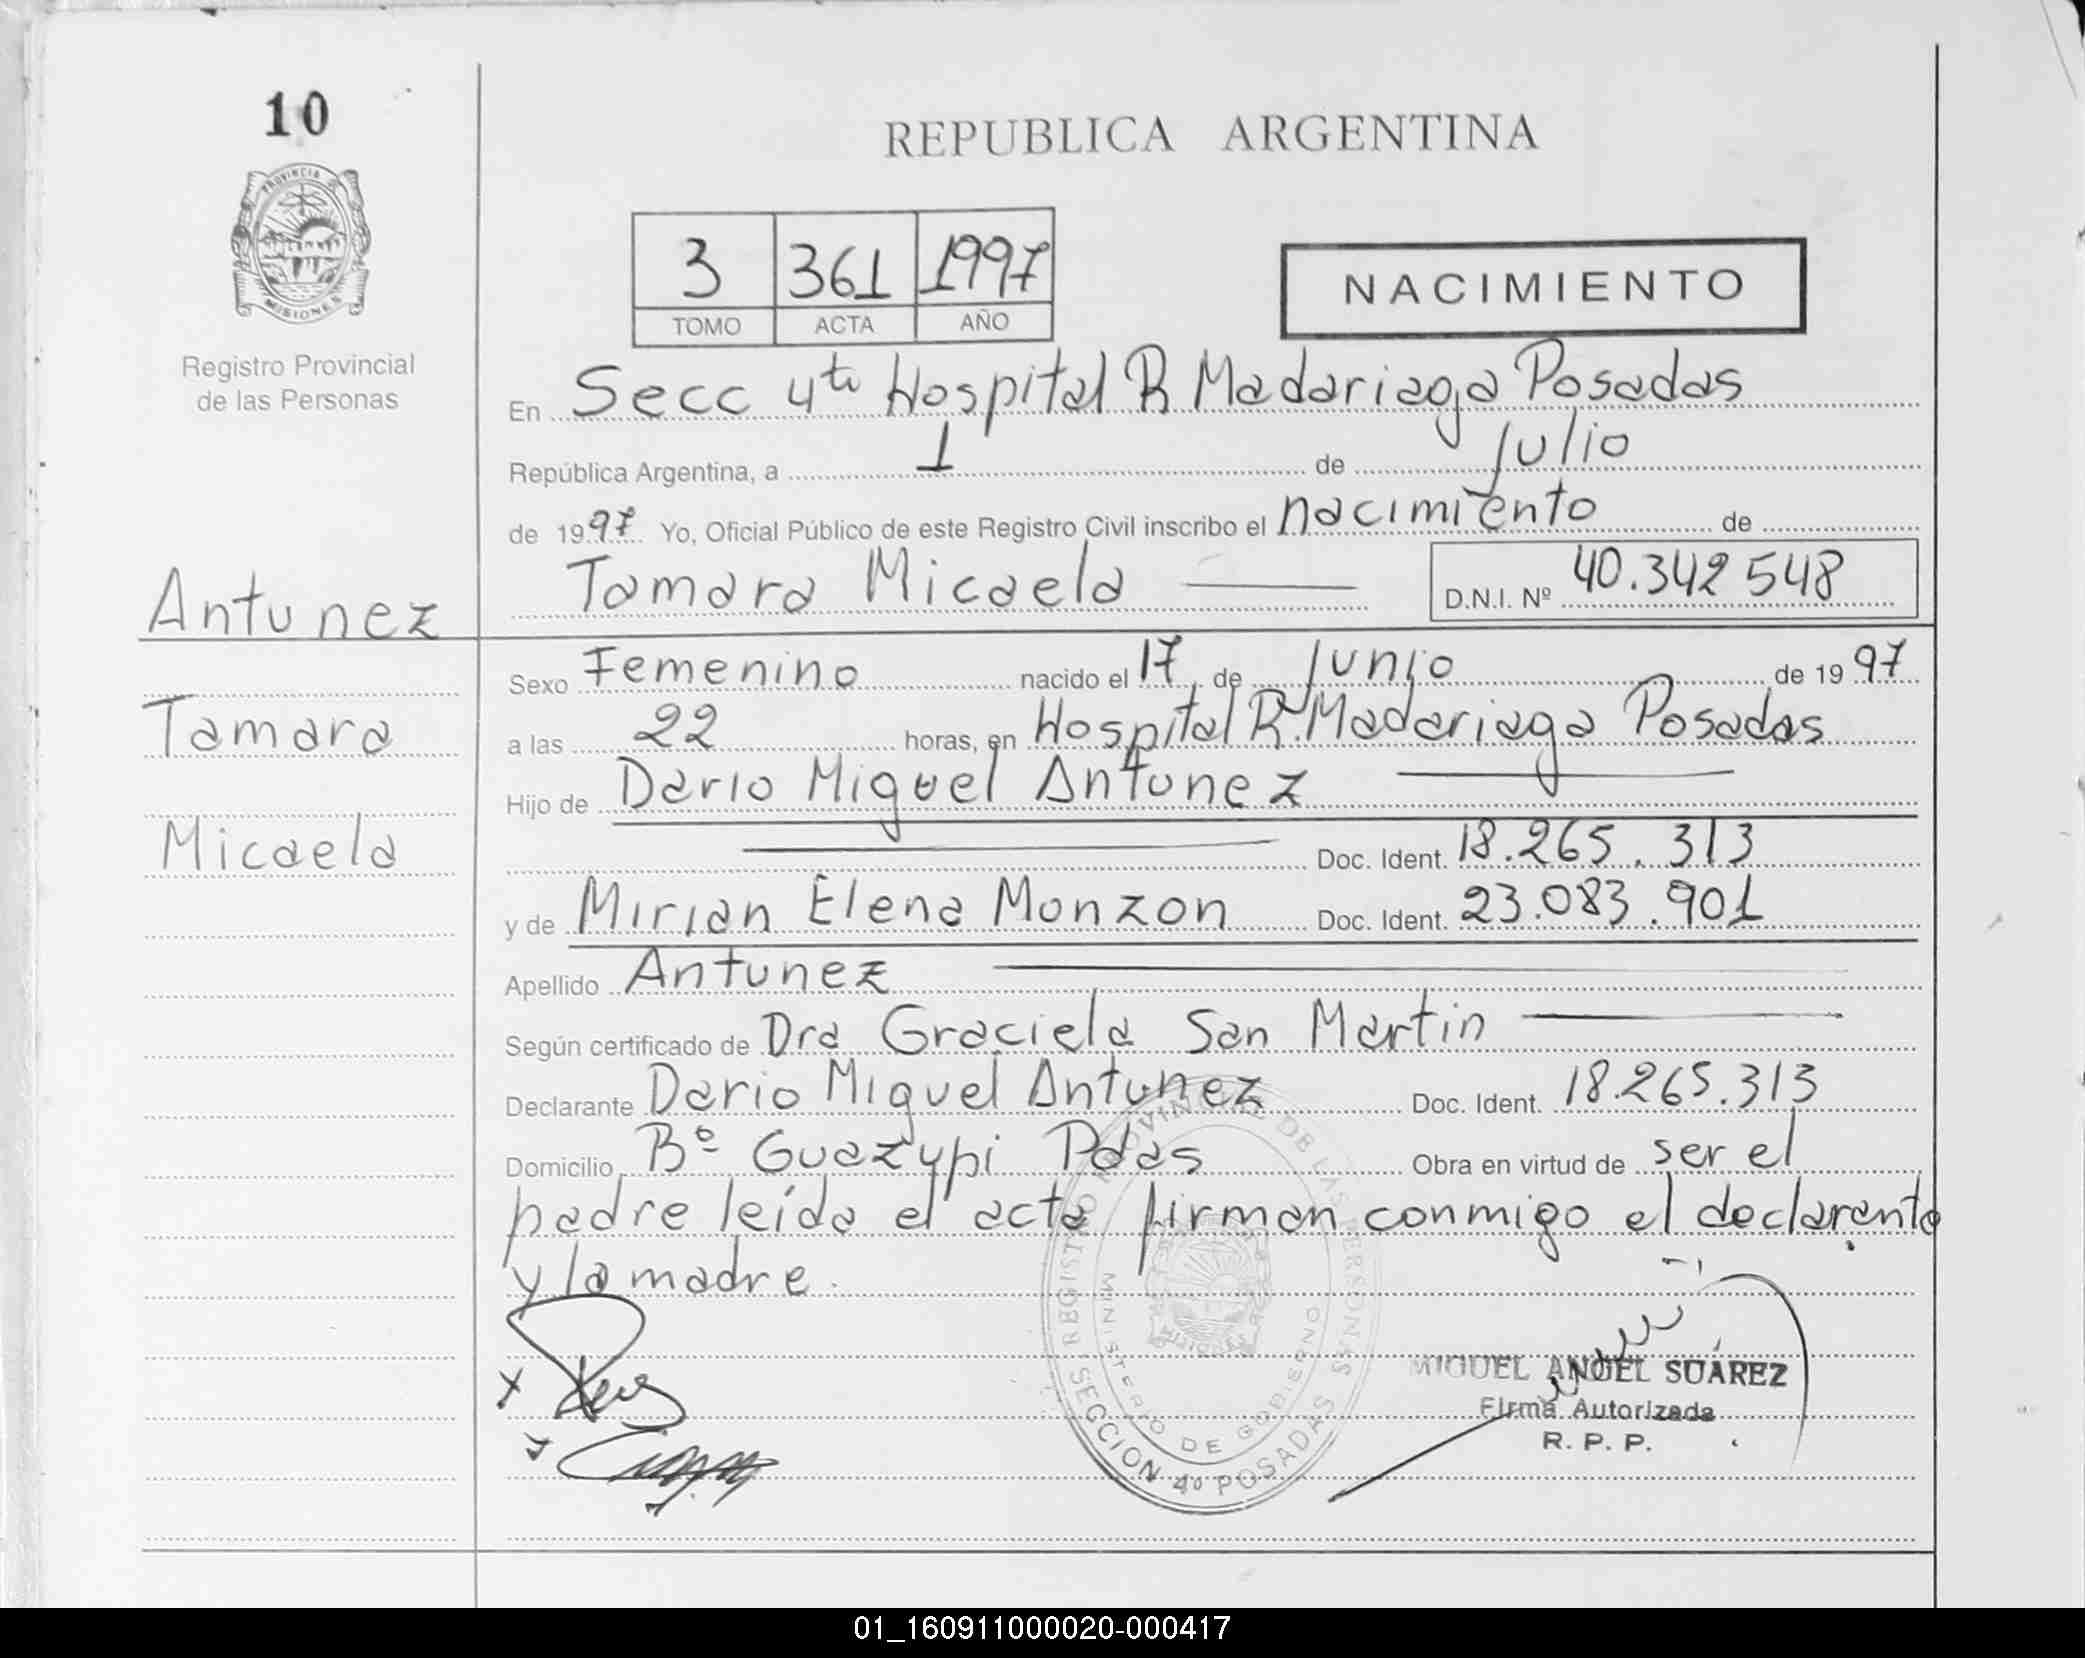 10
PROVINCIA
MISIONES
Registro Provincial
de las Personas
Antunez
Tamara
Micaela
REPUBLICA ARGENTINA
3 361 1997
TOMO ACTA AÑO
NACIMIENTO
En Secc 4ta Hospital R Madariaga Posadas
República Argentina, a 1 de Julio
de 1997 Yo, Oficial Público de este Registro Civil inscribo el nacimiento de
Tamara Micaela D.N.I. Nº 40.342548
Sexo Femenino nacido el 17 de Junio de 1997
a las 22 horas, en Hospital R. Madariaga Posadas
Hijo de Dario Miguel Antunez
Doc. Ident. 18.265.313
y de Mirian Elena Monzon Doc. Ident. 23.083.901
Apellido Antunez
Según certificado de Dra Graciela San Martin
Declarante Dario Miguel Antunez Doc. Ident. 18.265.313
Domicilio Bº Guazupi Pdas Obra en virtud de ser el
padre leída el acta firman conmigo el declarante
y la madre.
REGISTRO PROVINCIAL DE LAS PERSONAS
MINISTERIO DE GOBIERNO
SECCION 4º POSADAS
MIGUEL ANGEL SUÁREZ
Firma Autorizada
R. P. P.
01_160911000020-000417